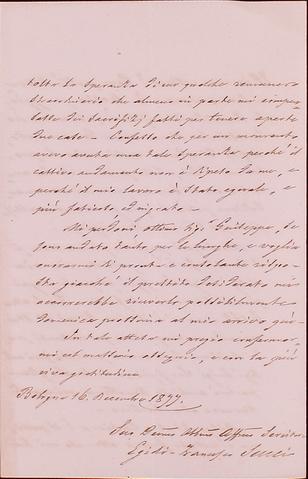 tolta la speranza di un qualche
straordinario che almeno in parte mi compen
satte dei sacrifizj fatti per tenere aperte
due case - Confesso che per un momento
avevo avuta una tale speranza perchè il
cattivo andamento non è da me, e
perchè il mio lavoro è stato eguale, e
più faticoso,
Mi perdoni ottimo Sigr Giuseppe, se
sono andato tanto per le lunghe, e voglia
onorarmi di pronta e
giacchè il prestito desiderato mi
occorrerebbe riceverlo possibilmente
Domenica prossima al mio arrivo
In tale attesa mi pregio confermar
mi col massimo ossequio, e con la più
viva gratitudine
Bologna 16. Decembre 1877.
Suo Devmo Servitore
Egidio Francesco Succi